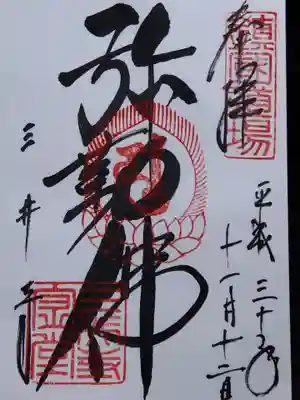 奉拝
平成三十年
十一月十二日
弥勒佛
三井寺